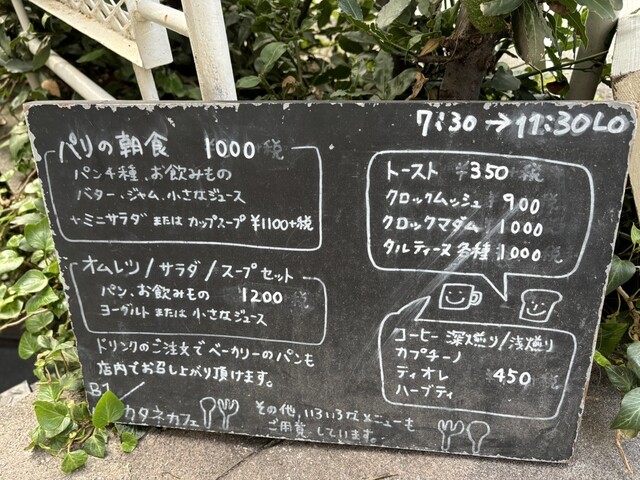 7:30→11:30LO
パリの朝食 ¥1000+税
パン4種、お飲みもの
バター、ジャム、小さなジュース
+ミニサラダ または カップスープ ¥1100+税
オムレツ/サラダ/スープセット
パン、お飲みもの 1200 税
ヨーグルト または 小さなジュース
ドリンクのご注文でベーカリーのパンも
店内でお召し上がり頂けます。
B1
カタネカフェ
その他、いろいろなメニューも
ご用意しています。
トースト ¥350+税
クロックムッシュ 900
クロックマダム 1000
タルティーヌ各種 1000
コーヒー 深煎り/浅煎り
カプチーノ
ティオレ 450
ハーブティ